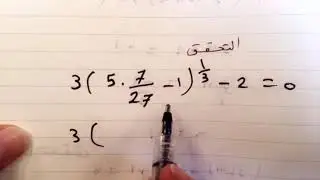 التحقق
3(5·7/27 -1)^1/3 - 2 = 0
3(